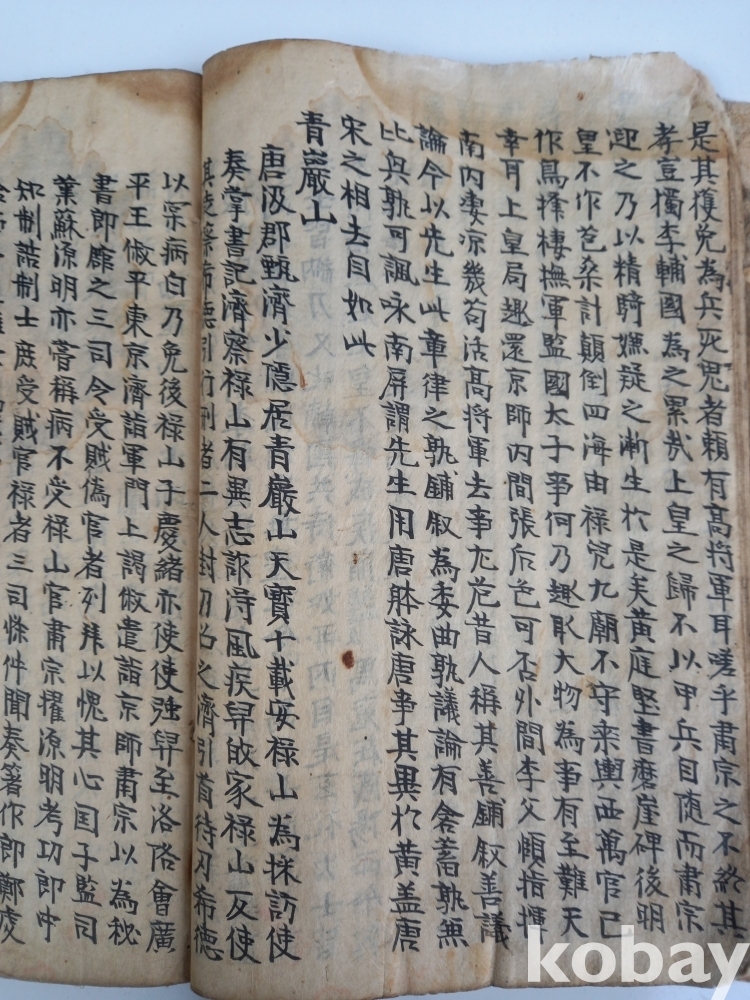 是其復免為兵死鬼者賴有髙將軍耳嗟乎肅宗之不終其
孝豈獨李輔國為之累㢤上皇之歸不以甲兵自随而肅宗
迎之乃以精騎嫌疑之漸生於是矣黄庭堅書磨崖碑後明
皇不作苞桑計顛倒四海由禄児九廟不守乘輿西萬官已
作鳥擇棲撫軍監國太子事何乃趣取大物為事有至難天
幸耳上皇局趣還京師内間張后色可否外間李父頤指揮
南内凄凉幾苟活髙將軍去事尤危昔人稱其善鋪叙善議
論今以先生此章律之孰鋪叙為委曲孰議論有含蓄孰無
比興孰可諷咏南屏謂先生用唐躰詠唐事其異於黄盖唐
宋之相去自如此
青巖山
唐汲郡甄濟少隱居青巖山天寳十載安禄山為採訪使
奏掌書記濟察禄山有異志詐得風疾舁故家禄山反使
其党蔡希德引行刑者二人封刀召之濟引首待刃希德
以宲病白乃免後禄山子慶緒亦使使强舁至洛陽會廣
平王俶平東京濟詣軍門上謁俶遣詣京師肅宗以為秘
書郎館之三司令受賊偽官者列拜以愧其心国子監司
業蘇源明亦甞稱病不受禄山官肅宗擢源明考功郎中
知制誥制士庶受賊官禄者三司條件聞奏著作郎鄭虔
kobay